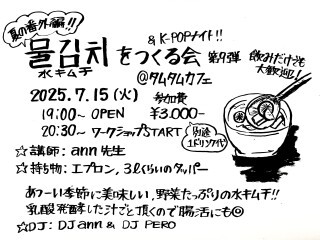 夏の番外編!!
& K-POPナイト!!
물김치をつくる会 第9弾
水キムチ
@タムタムカフェ
飲みだけも大歓迎!
2025.7.15(火) 参加費
19:00~ OPEN ¥3,000-
20:30~ ワークショップSTART
別途1ドリンクオーダー
☆講師: ann 先生
☆持ち物: エプロン, 3Lくらいのタッパー
あつーい季節に美味しい, 野菜たっぷりの水キムチ!!
乳酸発酵した汁ごと頂くので腸活にも◎
☆DJ: DJ ann & DJ PERO